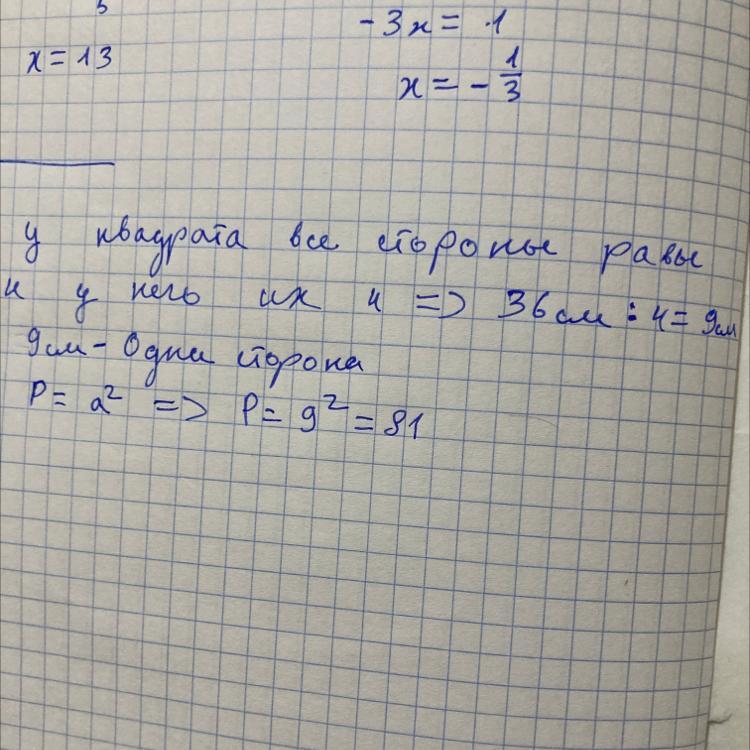 -3x = 1
x = 13
x = - 1/3
У квадрата все стороны равы
и у него их 4 => 36 см : 4 = 9 см
9 см - Одна сторона
P = a² => P = 9² = 81